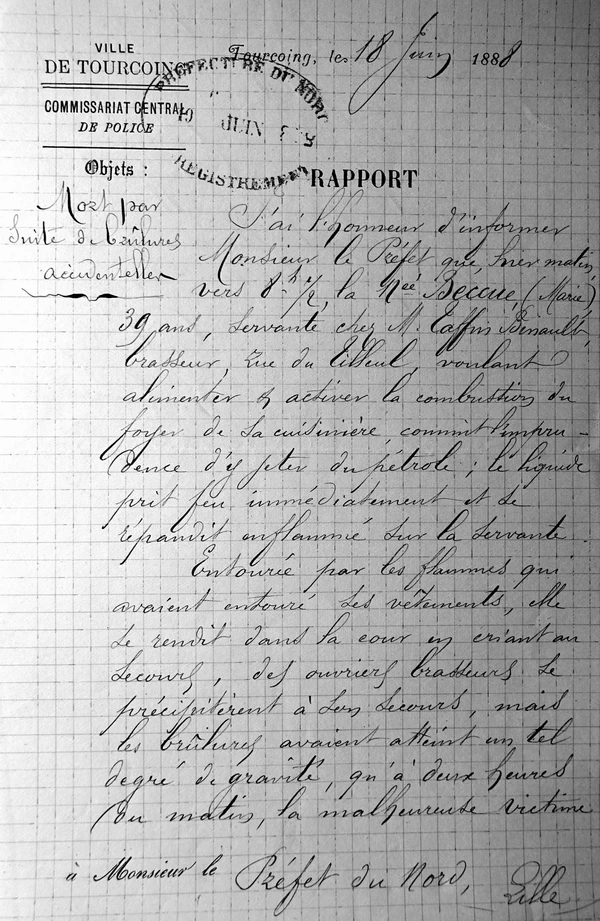 VILLE
DE TOURCOING
COMMISSARIAT CENTRAL
DE POLICE
Tourcoing, le 18 Juin 1888
PRÉFECTURE DU NORD
19 JUIN
REGISTREMENT
Objets :
Mort par
suite de brûlures
accidentelles
RAPPORT
J'ai l'honneur d'informer
Monsieur le Préfet que, hier matin,
vers 8 h ½, la née Beccue, (Marie)
39 ans, servante chez M. Taffin Binault,
brasseur, rue du Tilleul, voulant
alimenter & activer la combustion du
foyer de sa cuisinière, commit l'impru-
dence d'y jeter du pétrole ; le liquide
prit feu immédiatement et se
répandit enflammé sur la servante.
Entourée par les flammes qui
avaient entouré ses vêtements, elle
se rendit dans la cour en criant au
secours, des ouvriers brasseurs se
précipitèrent à son secours, mais
les brûlures avaient atteint un tel
degré de gravité, qu'à deux heures
du matin, la malheureuse victime
à Monsieur le Préfet du Nord,
Lille